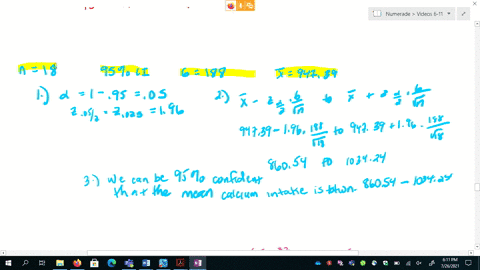 Numerade > Videos 6-11
n = 18 95% CI σ = 188 x̄ = 947.39
1.) α = 1 - .95 = .05
z.05/2 = z.025 = 1.96
2.) x̄ - z α/2 · σ/√n to x̄ + z α/2 · σ/√n
947.39 - 1.96 · 188/√18 to 947.39 + 1.96 · 188/√18
860.54 to 1034.24
3.) We can be 95% confident
that the mean calcium intake is btwn. 860.54 - 1034.24
6:11 PM
7/26/2021